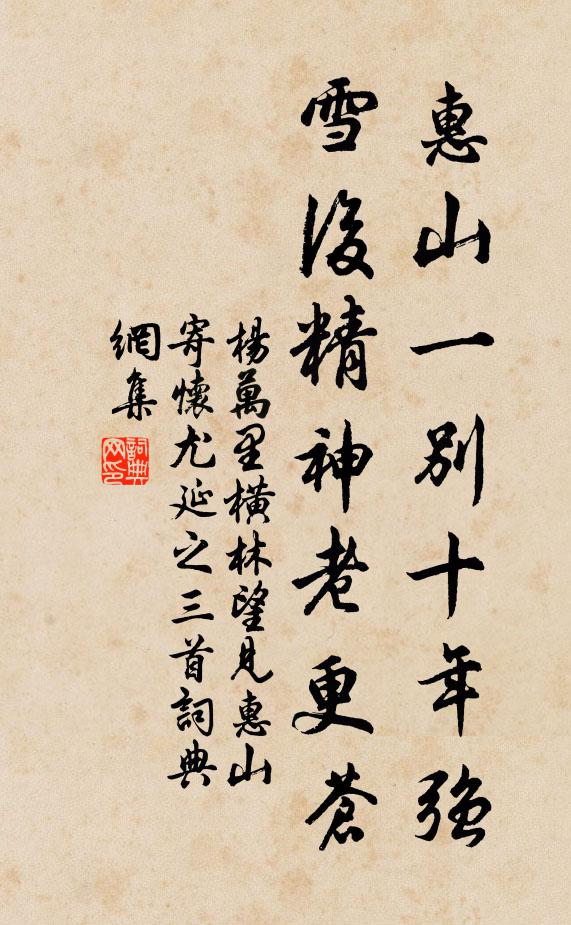 惠山一別十年強
雪後精神老更蒼
楊萬里橫林望見惠山
寄懷尤延之三首詞典
網集
詞典
网印